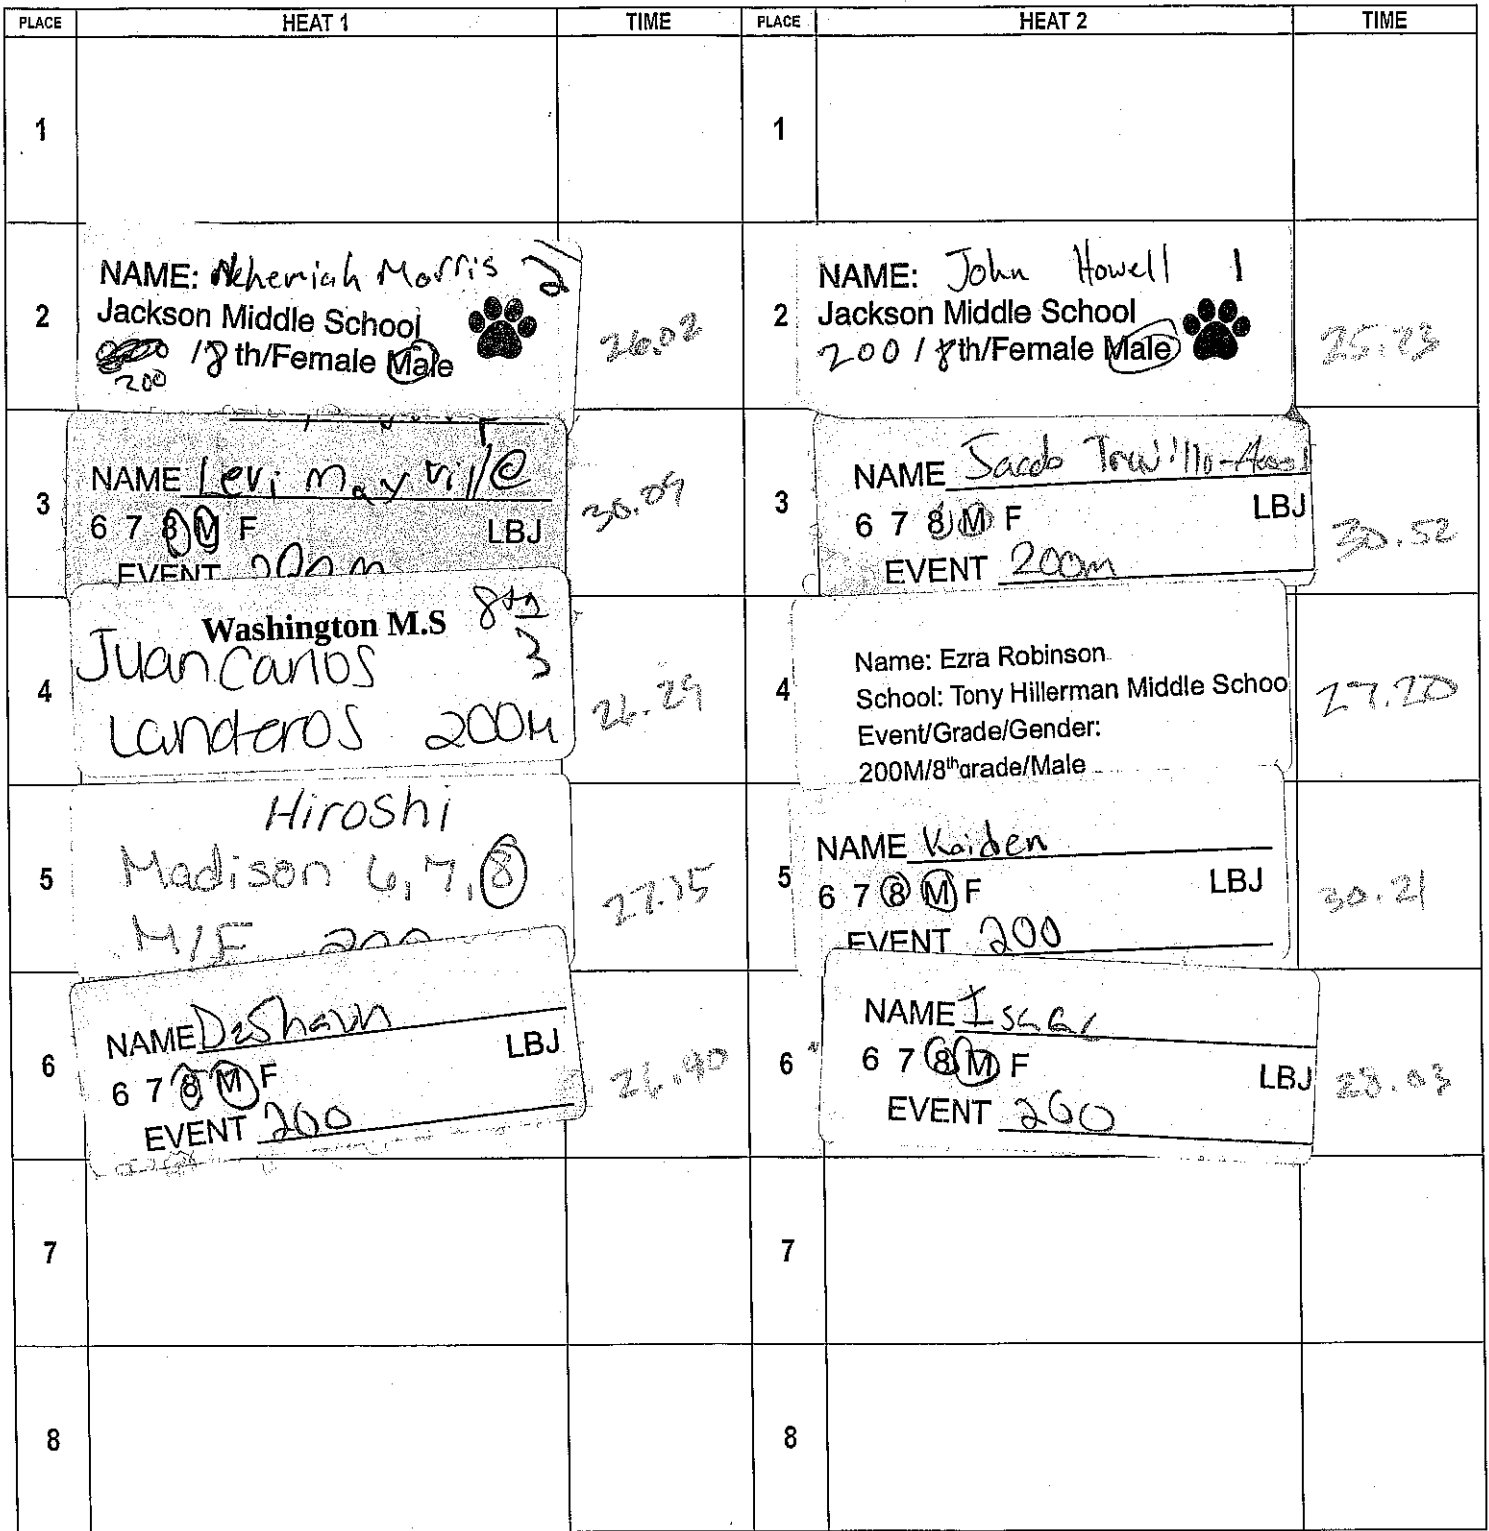 PLACE HEAT 1 TIME PLACE HEAT 2 TIME
1
1
2
NAME: Nehemiah Morris 2
Jackson Middle School
200 / 8 th/Female Male
26.02
2
NAME: John Howell 1
Jackson Middle School
200 / 8th/Female Male
25.23
3
NAME Levi Mayville
6 7 8 M F LBJ
EVENT 200m
30.09
3
NAME Jacob
6 7 8 M F LBJ
EVENT 200m
30.52
4
Washington M.S 8th
Juan Carlos 3
Landeros 200M
26.29
4
Name: Ezra Robinson
School: Tony Hillerman Middle Schoo
Event/Grade/Gender:
200M/8th grade/Male
27.20
5
Hiroshi
Madison 6, 7, 8
M/F 200
27.15
5
NAME Kaiden
6 7 8 M F LBJ
EVENT 200
30.21
6
NAME DeShaun
6 7 8 M F LBJ
EVENT 200
26.90
6
NAME Isaac
6 7 8 M F LBJ
EVENT 200
28.03
7
7
8
8